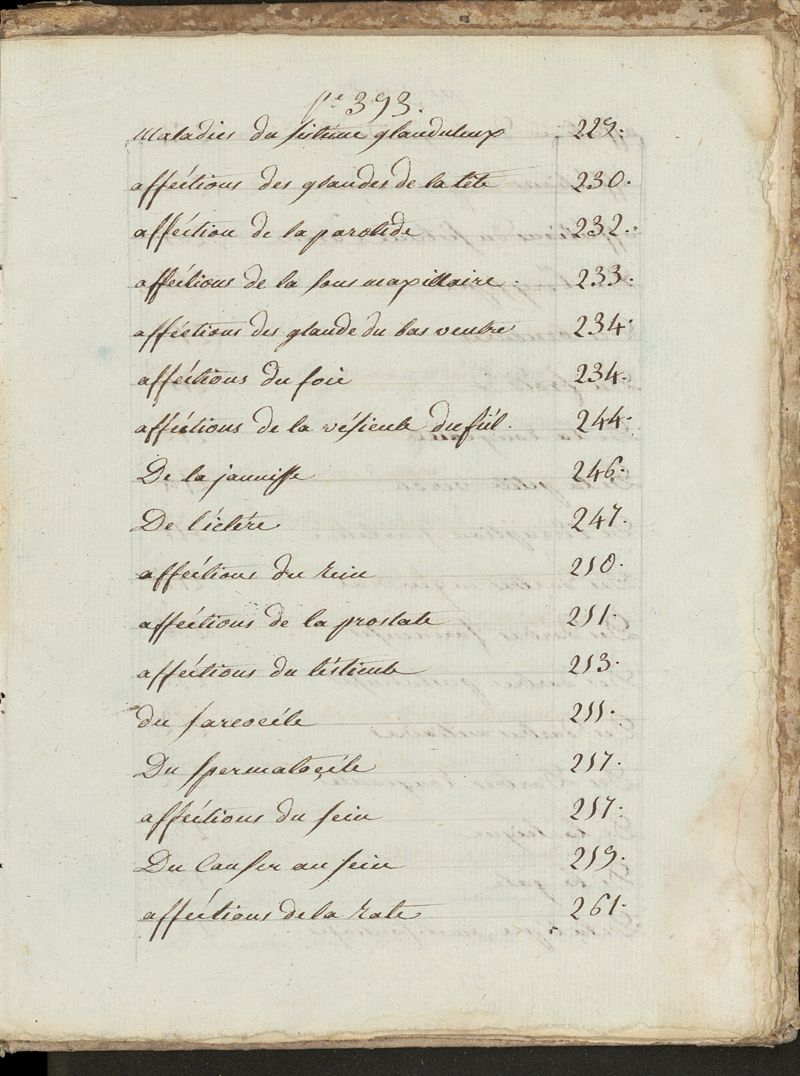 pe 393.
Maladies du sistème glanduleux 229.
afféctions des glandes de la tête 230.
afféction de la parotide 232.
afféctions de la sous maxillaire. 233.
afféctions des glande du bas ventre 234.
afféctions du foie 234.
afféctions de la vésicule du fiél. 244.
De la jaunisse 246.
De l'éctére 247.
afféctions du rein 250.
afféctions de la prostate 251.
afféctions du tésticule 253.
du sarcocéle 255.
Du spermatocéle 257.
afféctions du sein 257.
Du Canser au sein 259.
afféctions de la rate 261.